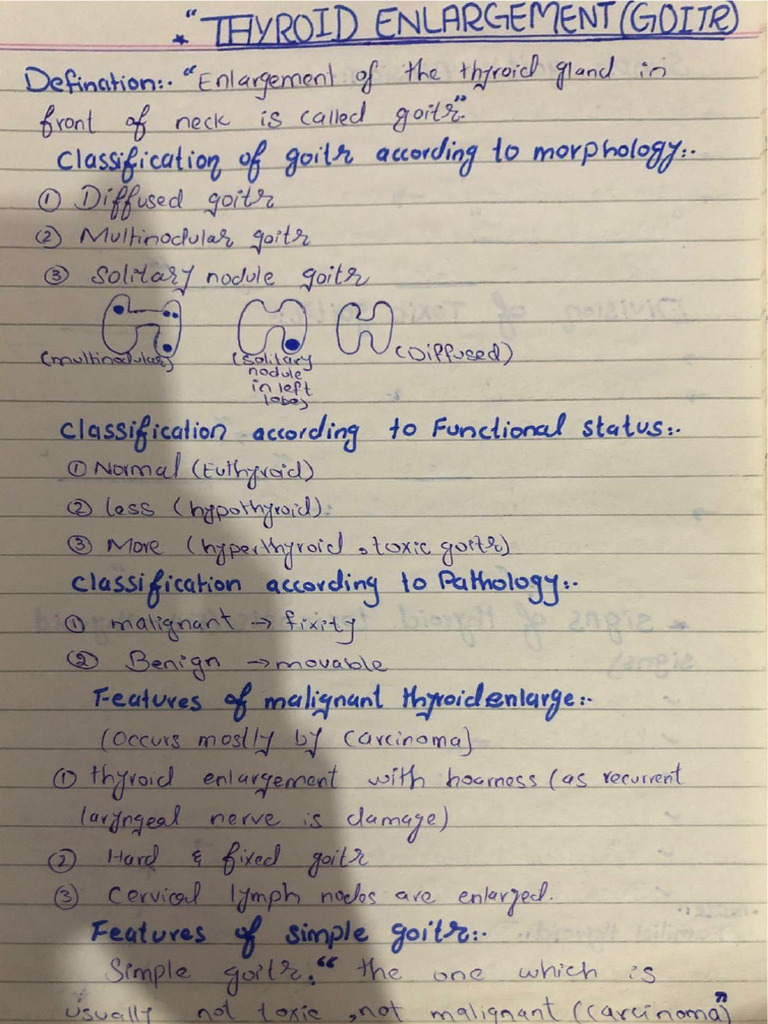 * "THYROID ENLARGEMENT (GOITR)
Defination:- "Enlargement of the thyroid gland in
front of neck is called goitr".
Classification of goitr according to morphology:-
① Diffused goitr
② Multinodular goitr
③ Solitary nodule goitr
(multinodular)
(solitary
nodule
in left
lobe)
(Diffused)
Classification according to Functional status:-
① Normal (Euthyroid)
② less (hypothyroid)
③ More (hyperthyroid, toxic goitr)
Classification according to Pathology:-
① malignant → fixity
② Benign → movable
Features of malignant thyroid enlarge:-
(Occurs mostly by Carcinoma)
① thyroid enlargement with hoarness (as recurrent
laryngeal nerve is damage)
② Hard & fixed goitr
③ Cervical lymph nodes are enlarged.
Features of simple goitr:-
Simple goitr: "the one which is
usually not toxic, not malignant (carcinoma)"